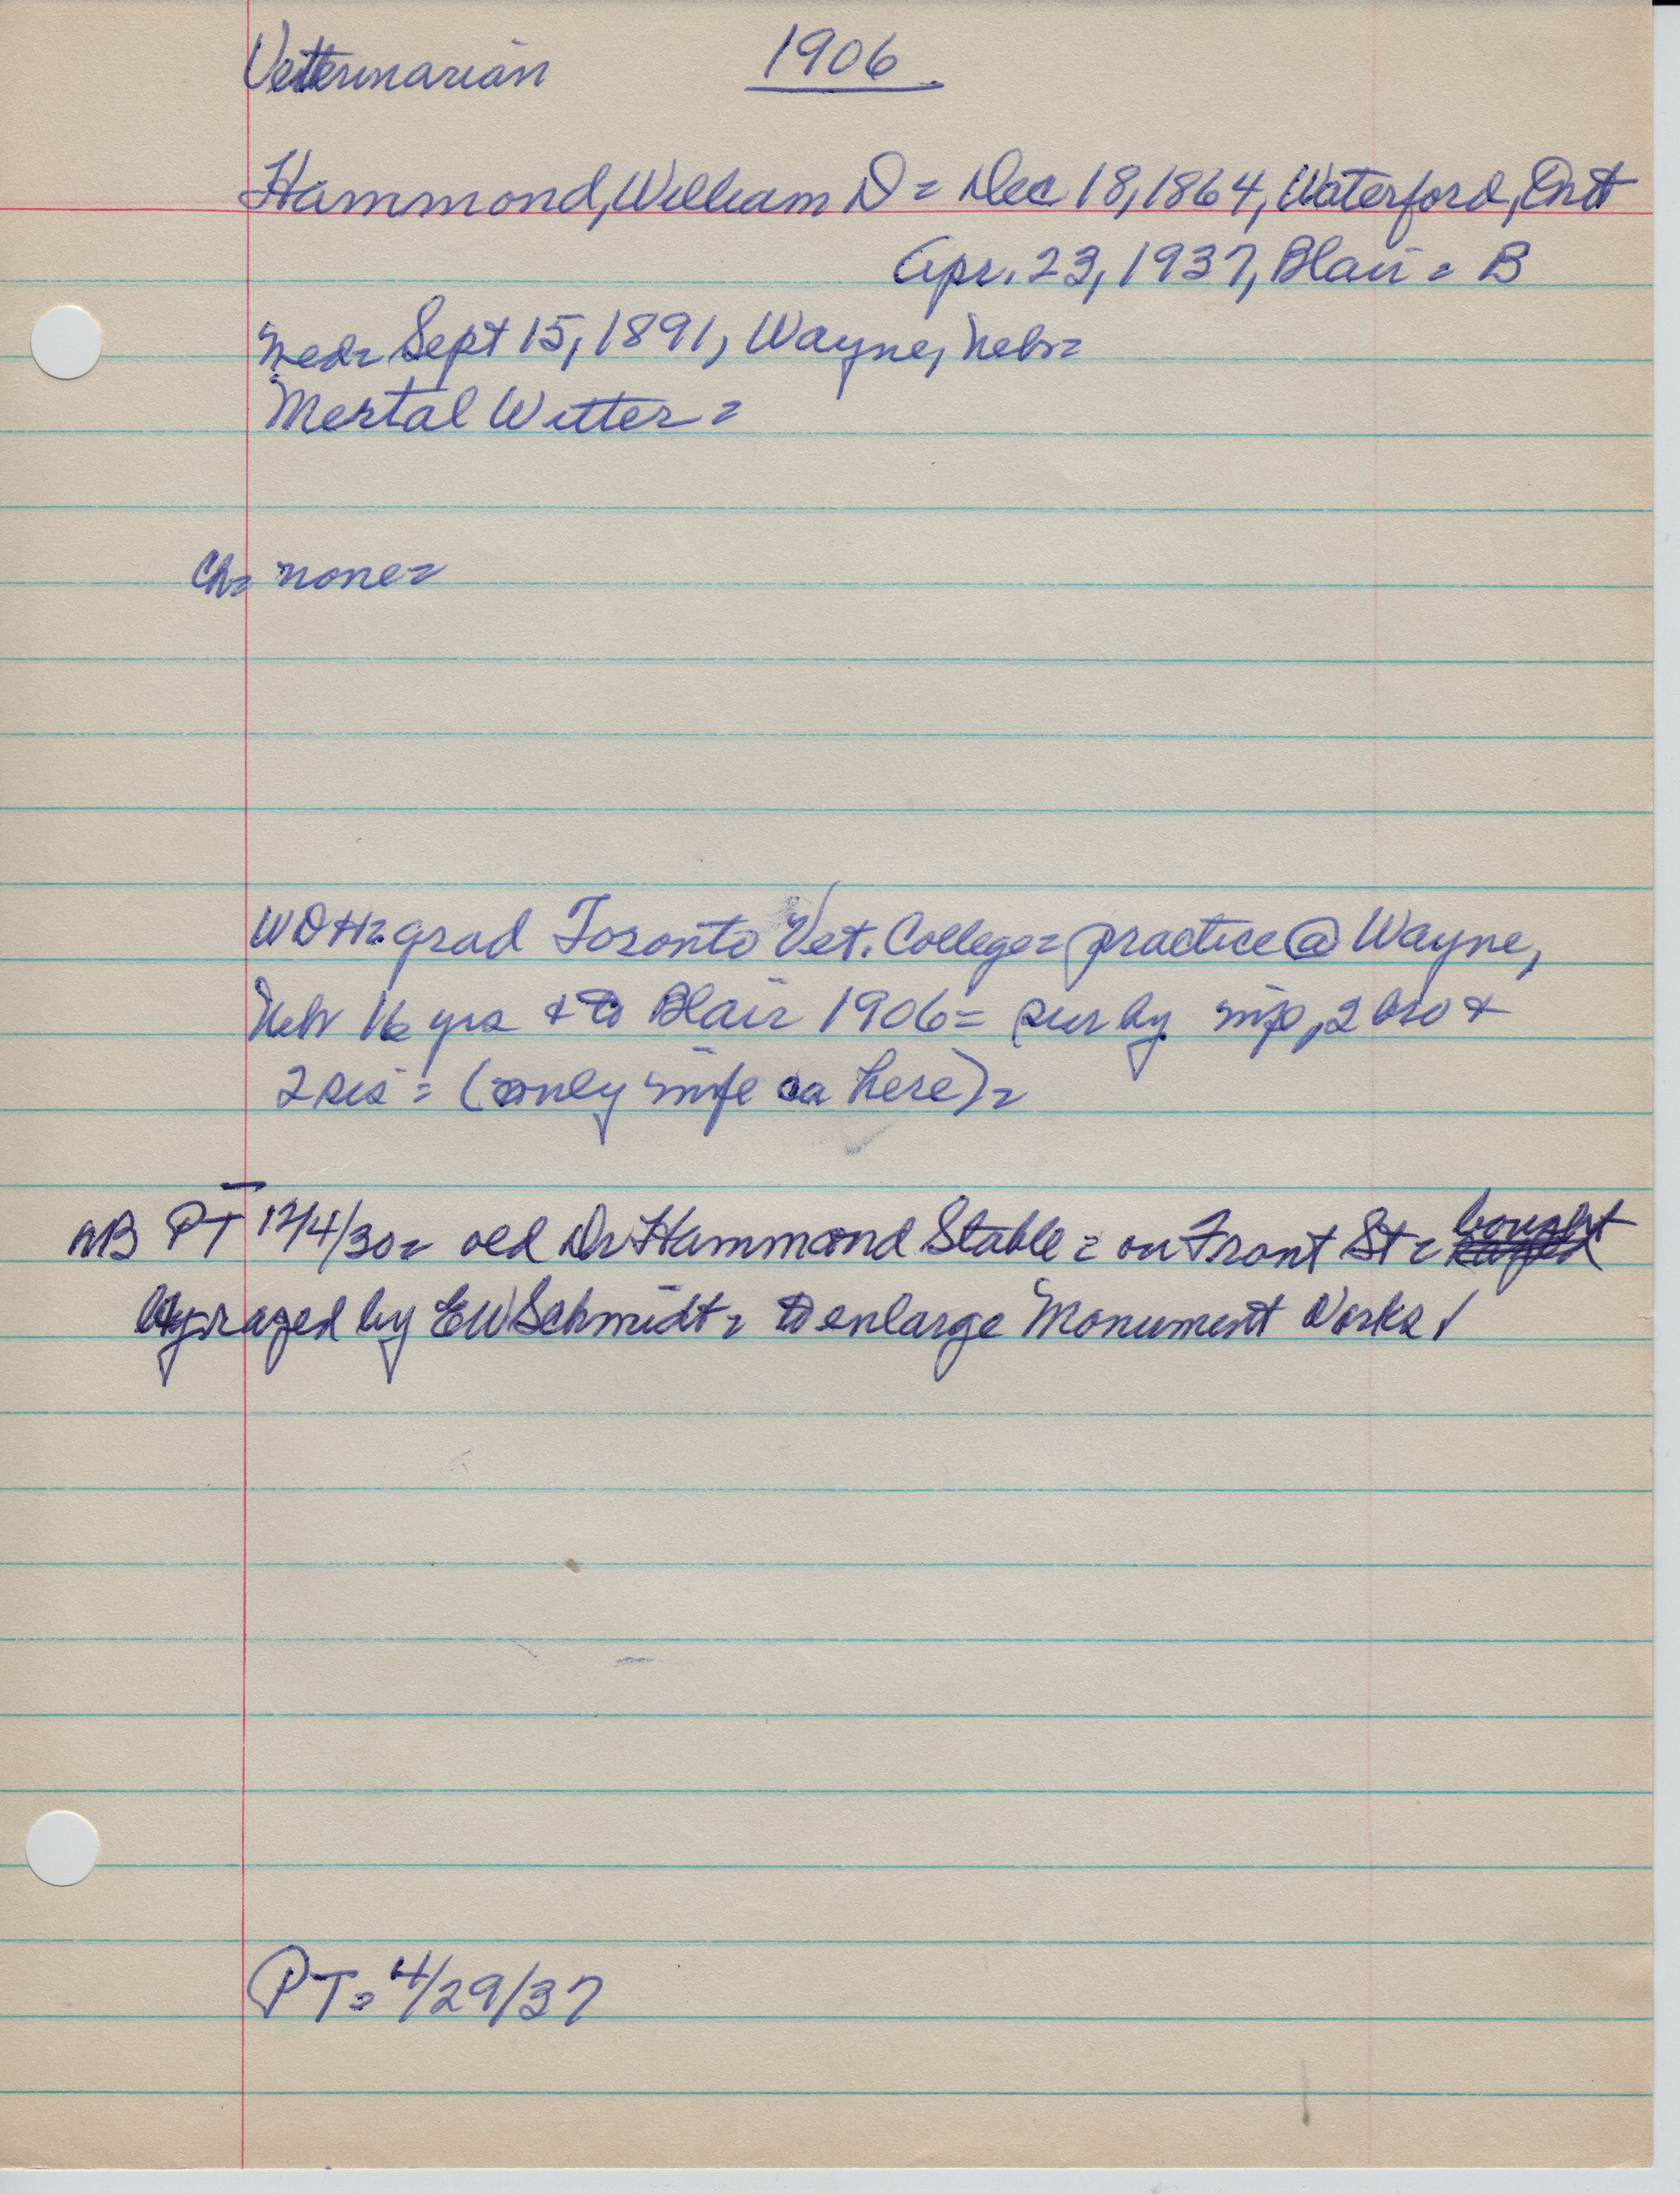 Veterinarian 1906
Hammond, William D = Dec 18, 1864, Waterford, Ont
Apr. 23, 1937, Blair = B
med= Sept 15, 1891, Wayne, Nebr=
Mertal Witter =
Ch= none=
WDH= grad Toronto Vet. College= practice @ Wayne,
Neb 16 yrs & to Blair 1906= sur by wife, 2 bro &
2 sis = (only wife ca here)=
NB PT 12/4/30= old Dr Hammond Stable = on Front St = bought
& razed by EW Schmidt = to enlarge Monument Works!
PT= 4/29/37